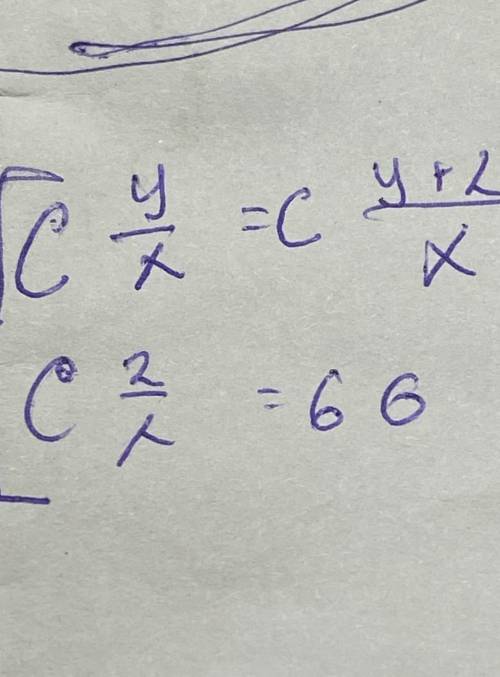 [C y/x = C y+2/x
C 2/x = 66